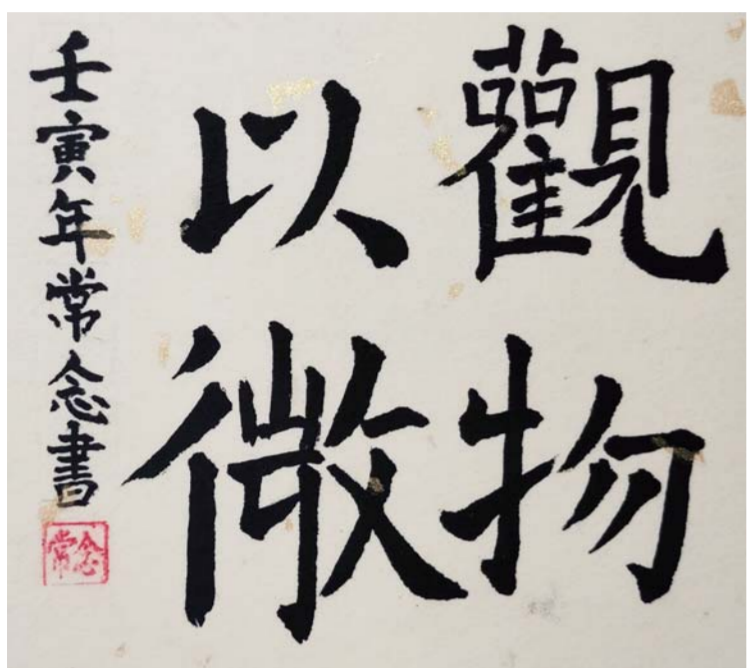 觀物
以微
壬寅年常念書
常念